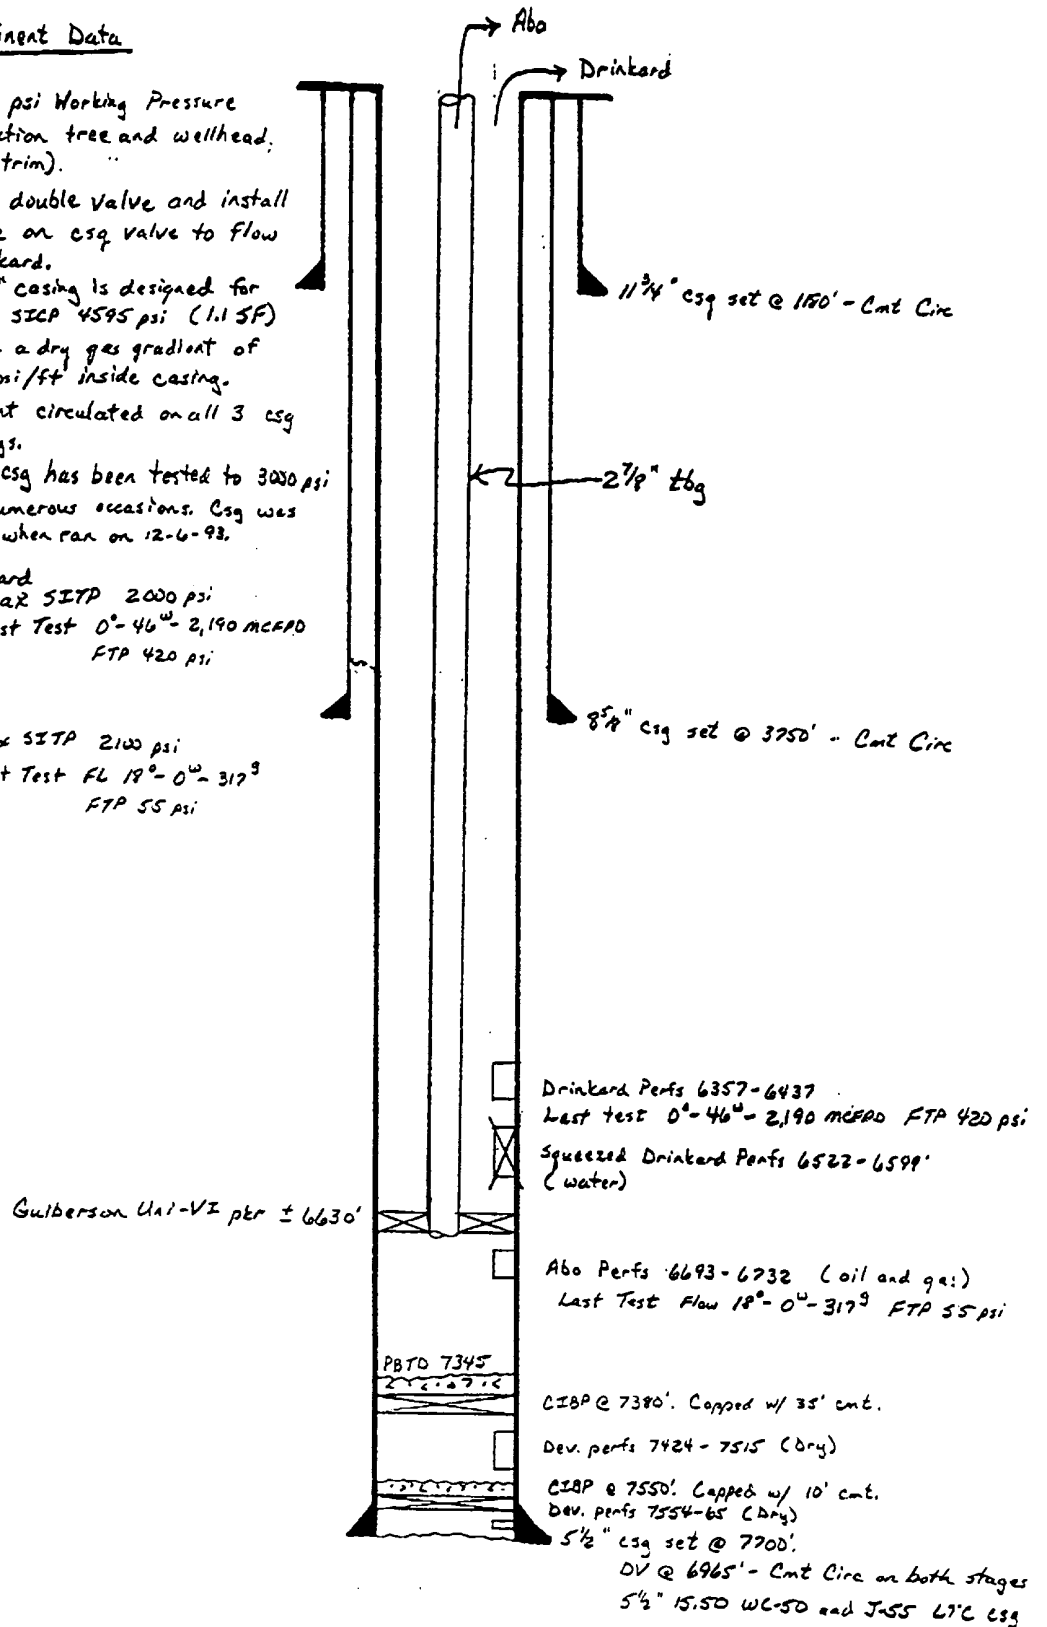 inent Data
psi Working Pressure
ction tree and wellhead,
trim).
double valve and install
e on csg valve to flow
kard.
" casing is designed for
SICP 4595 psi (1.1 SF)
a dry gas gradient of
psi/ft inside casing.
nt circulated on all 3 csg
gs.
csg has been tested to 3000 psi
umerous occasions. Csg was
when ran on 12-6-93.
ard
ax SITP 2000 psi
st Test 0°-46ʷ-2,190 MCFPD
FTP 420 psi
x SITP 2100 psi
t Test FL 18°-0ʷ-317ᵍ
FTP 55 psi
Abo
Drinkard
11 3/4" csg set @ 1150' - Cmt Circ
2 7/8" tbg
8 5/8" csg set @ 3750' - Cmt Circ
Drinkard Perfs 6357-6437
Last test 0°-46ʷ-2,190 MCFPD FTP 420 psi
Squeezed Drinkard Perfs 6522-6599'
(water)
Guiberson Uni-VI pkr ± 6630'
Abo Perfs 6693-6732 (oil and gas)
Last Test Flow 18°-0ʷ-317ᵍ FTP 55 psi
PBTD 7345
CIBP @ 7380'. Capped w/ 35' cmt.
Dev. perfs 7424-7515 (Dry)
CIBP @ 7550'. Capped w/ 10' cmt.
Dev. perfs 7554-65 (Dry)
5 1/2" csg set @ 7700'.
DV @ 6965' - Cmt Circ on both stages
5 1/2" 15.50 WC-50 and J-55 LTC csg